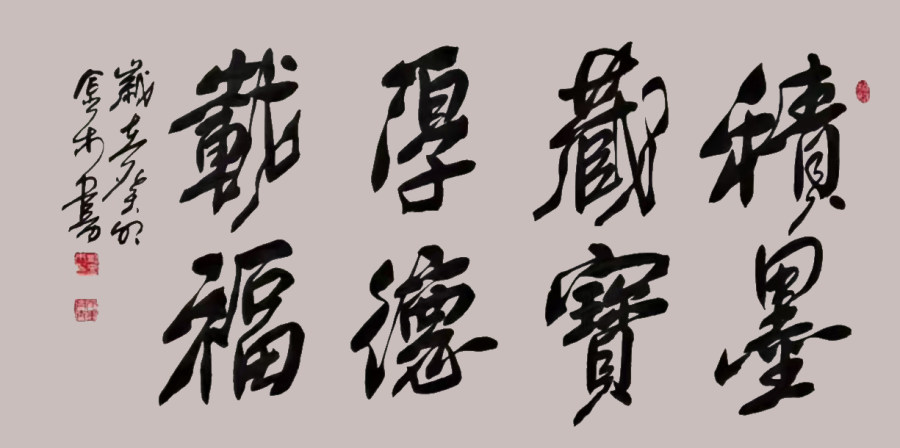 積墨
藏寶
厚德
載福
歲在癸卯
金木書